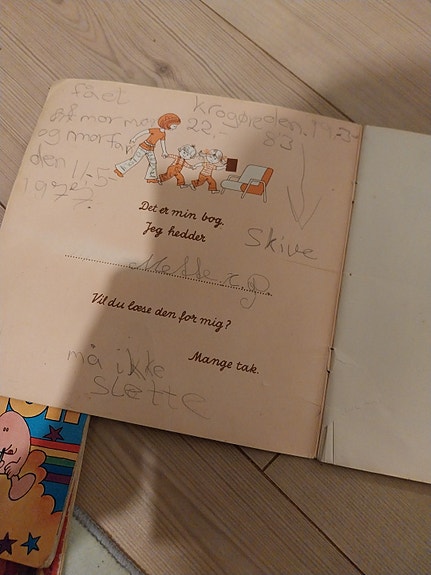 fået
af mormor
og morfar
den 11-5-
1977.
krogøieden. 193-
22.
83
Skive
Det er min bog.
Jeg hedder
Mette
Vil du læse den for mig?
Mange tak.
må ikke
SLETTE